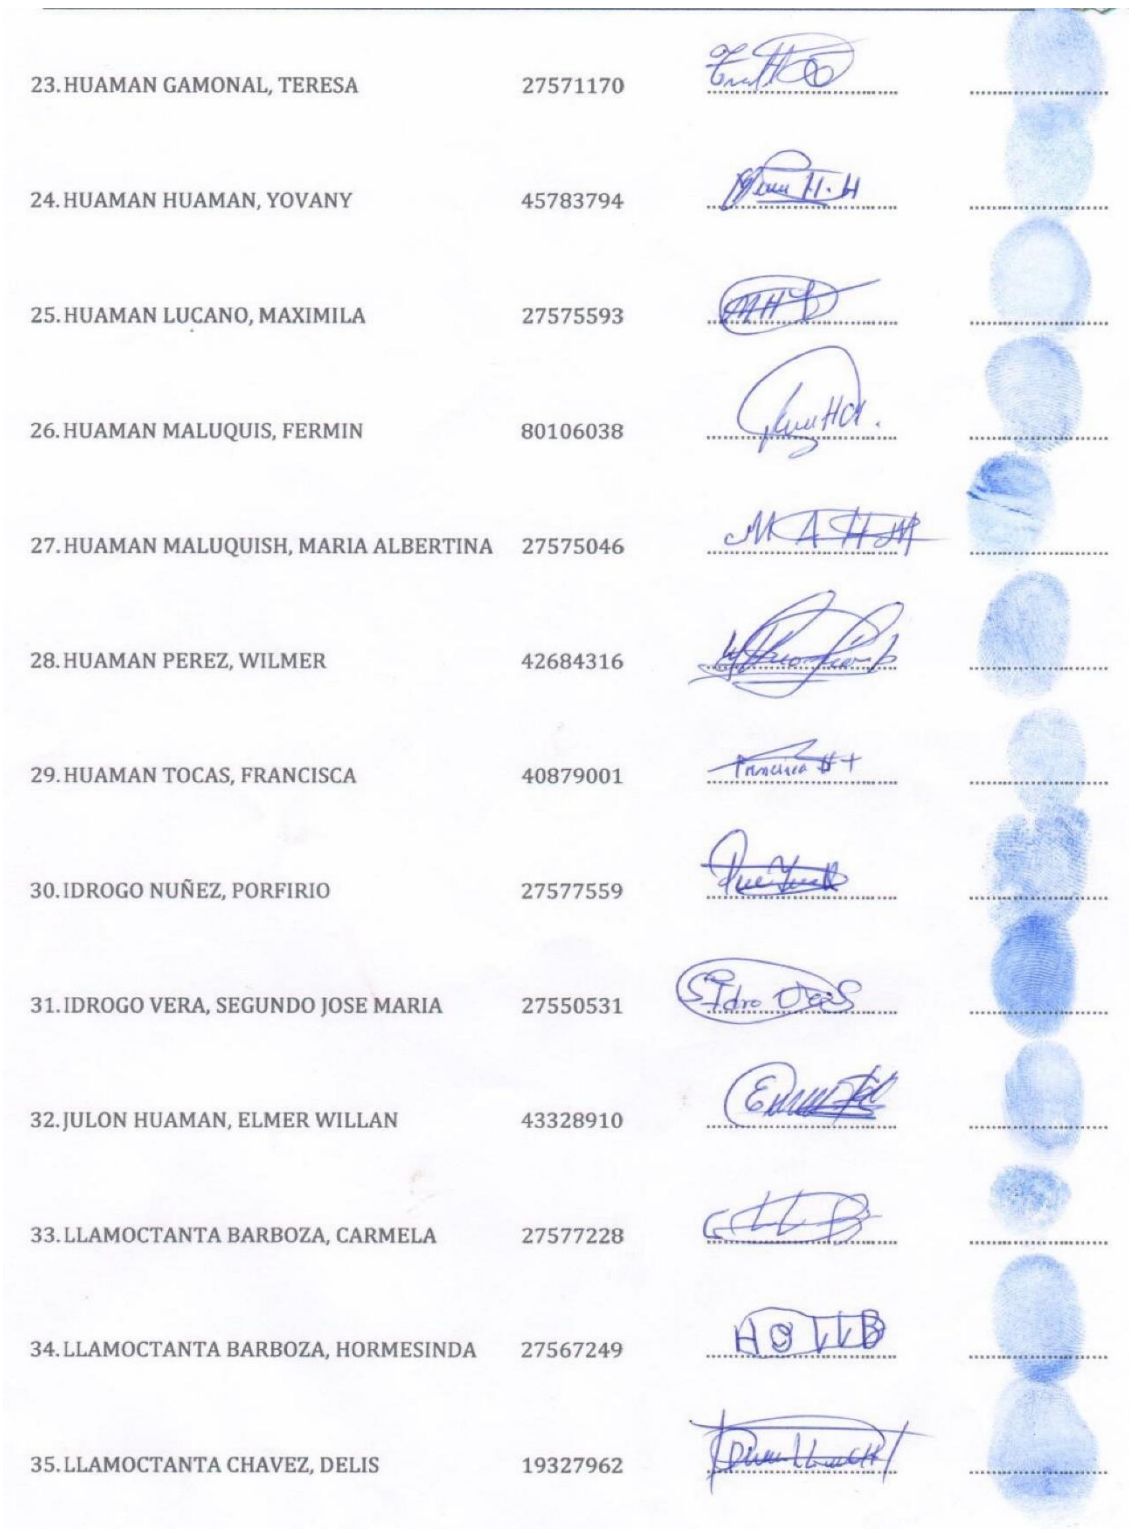 23. HUAMAN GAMONAL, TERESA 27571170
24. HUAMAN HUAMAN, YOVANY 45783794 H.H
25. HUAMAN LUCANO, MAXIMILA 27575593 MH
26. HUAMAN MALUQUIS, FERMIN 80106038
27. HUAMAN MALUQUISH, MARIA ALBERTINA 27575046 M A H M
28. HUAMAN PEREZ, WILMER 42684316
29. HUAMAN TOCAS, FRANCISCA 40879001 Francisca H T
30. IDROGO NUÑEZ, PORFIRIO 27577559
31. IDROGO VERA, SEGUNDO JOSE MARIA 27550531 Idro
32. JULON HUAMAN, ELMER WILLAN 43328910
33. LLAMOCTANTA BARBOZA, CARMELA 27577228
34. LLAMOCTANTA BARBOZA, HORMESINDA 27567249 HO LLB
35. LLAMOCTANTA CHAVEZ, DELIS 19327962